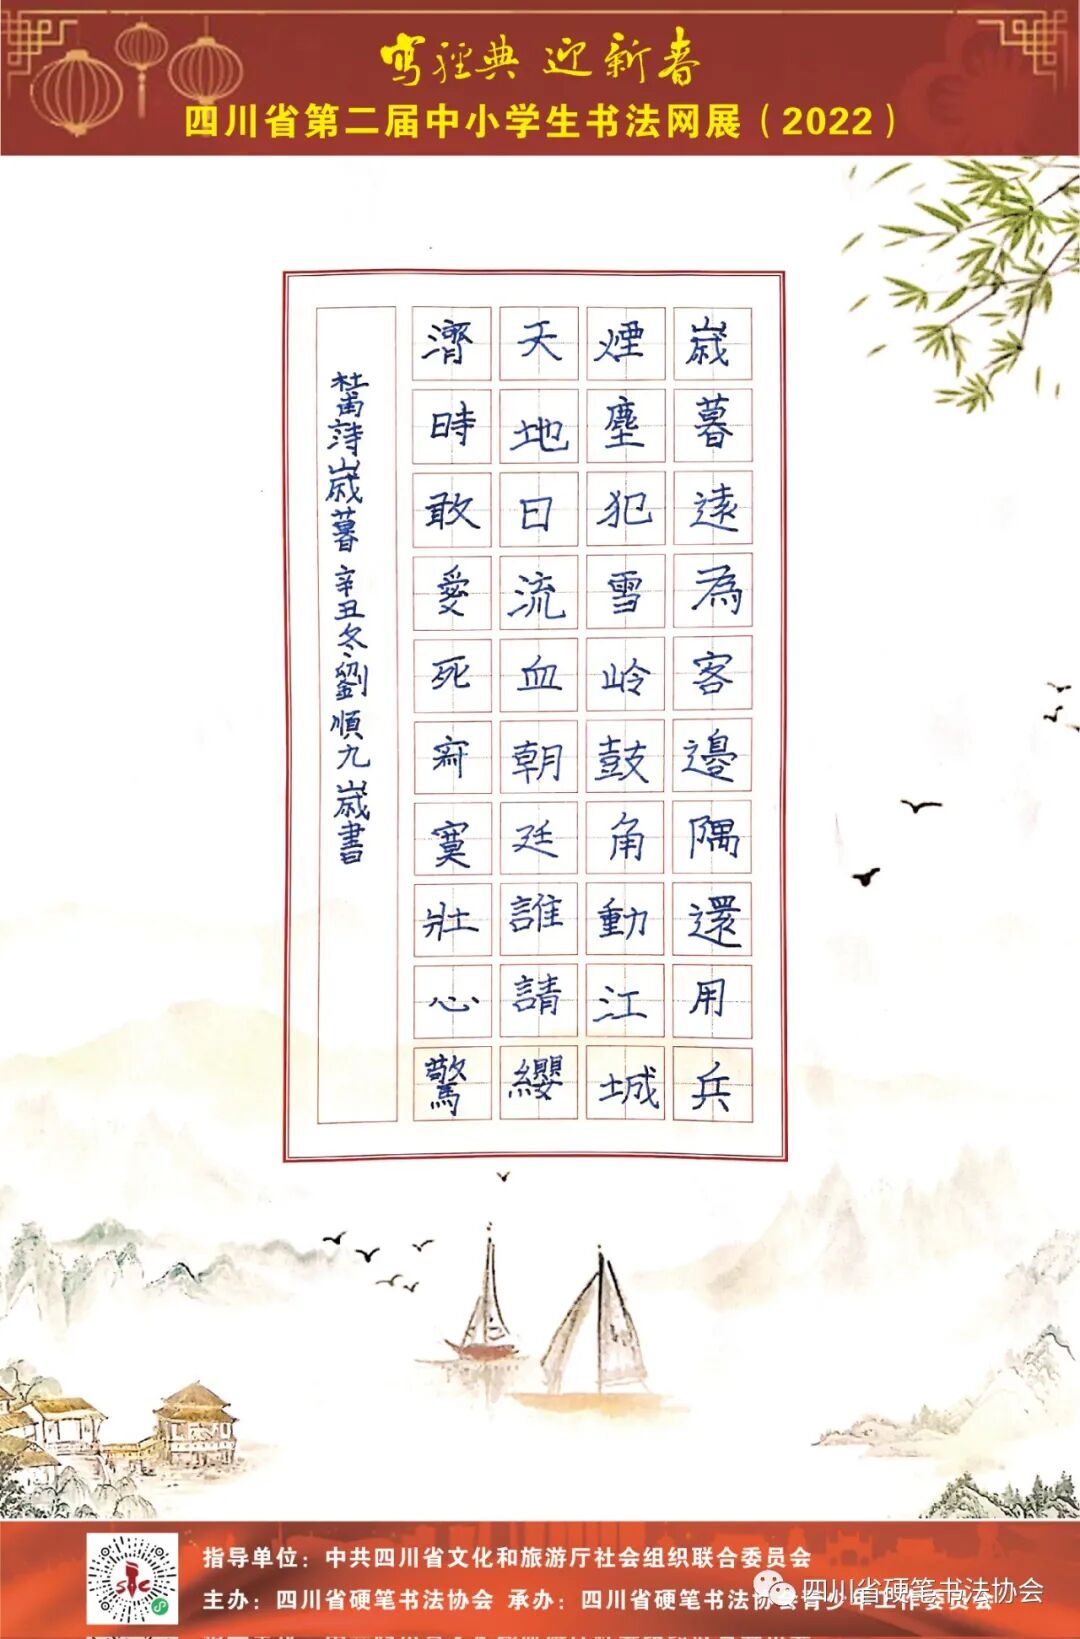 写經典 迎新春
四川省第二届中小学生书法网展（2022）
歲暮遠為客邊隅還用兵
煙塵犯雪岭鼓角動江城
天地日流血朝廷誰請纓
濟時敢愛死寂寞壯心驚
杜甫詩歲暮 辛丑冬劉順九歲書
指导单位：中共四川省文化和旅游厅社会组织联合委员会
主办：四川省硬笔书法协会 承办：四川省硬笔书法协会青少年工作委员会
四川省硬笔书法协会